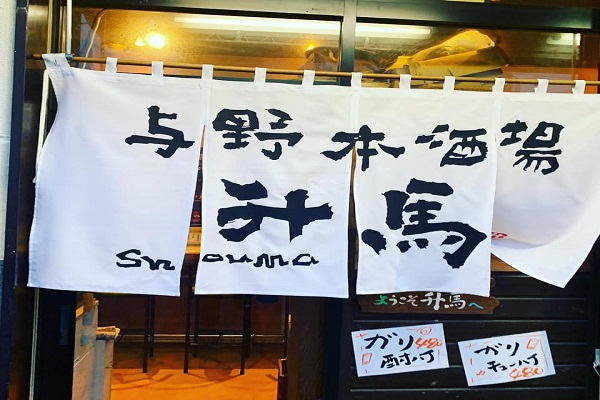 与野本酒場
升馬
Shouma
ようこそ升馬へ
ガリ
酎ハイ
480
ガリ
チューハイ
480